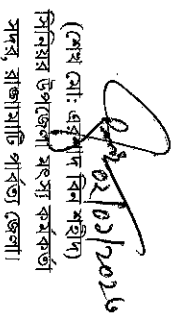 ০২/০২/২০২৬
(শেখ মো: বিন শহীদ)
সিনিয়র উপজেলা মৎস্য কর্মকর্তা
সদর, রাঙ্গামাটি পার্বত্য জেলা।